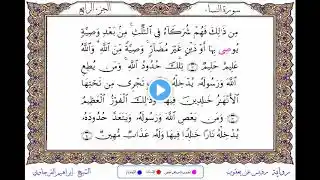 سورة النساء
الجزء الرابع
مِن ذَٰلِكَ فَهُمْ شُرَكَاءُ فِي الثُّلُثِ مِن بَعْدِ وَصِيَّةٍ
يُوصِي بِهَا أَوْ دَيْنٍ غَيْرَ مُضَارٍّ وَصِيَّةً مِّنَ اللَّهِ وَاللَّهُ
عَلِيمٌ حَلِيمٌ تِلْكَ حُدُودُ اللَّهِ وَمَن يُطِعِ
اللَّهَ وَرَسُولَهُ يُدْخِلْهُ تَجْرِي مِن تَحْتِهَا
الْأَنْهَارُ خَالِدِينَ فِيهَا وَذَٰلِكَ الْفَوْزُ الْعَظِيمُ
وَمَن يَعْصِ اللَّهَ وَرَسُولَهُ وَيَتَعَدَّ حُدُودَهُ
يُدْخِلْهُ نَارًا خَالِدًا فِيهَا وَلَهُ عَذَابٌ مُّهِينٌ
رواية رويس عن يعقوب
الشيخ إبراهيم الفرجاوي